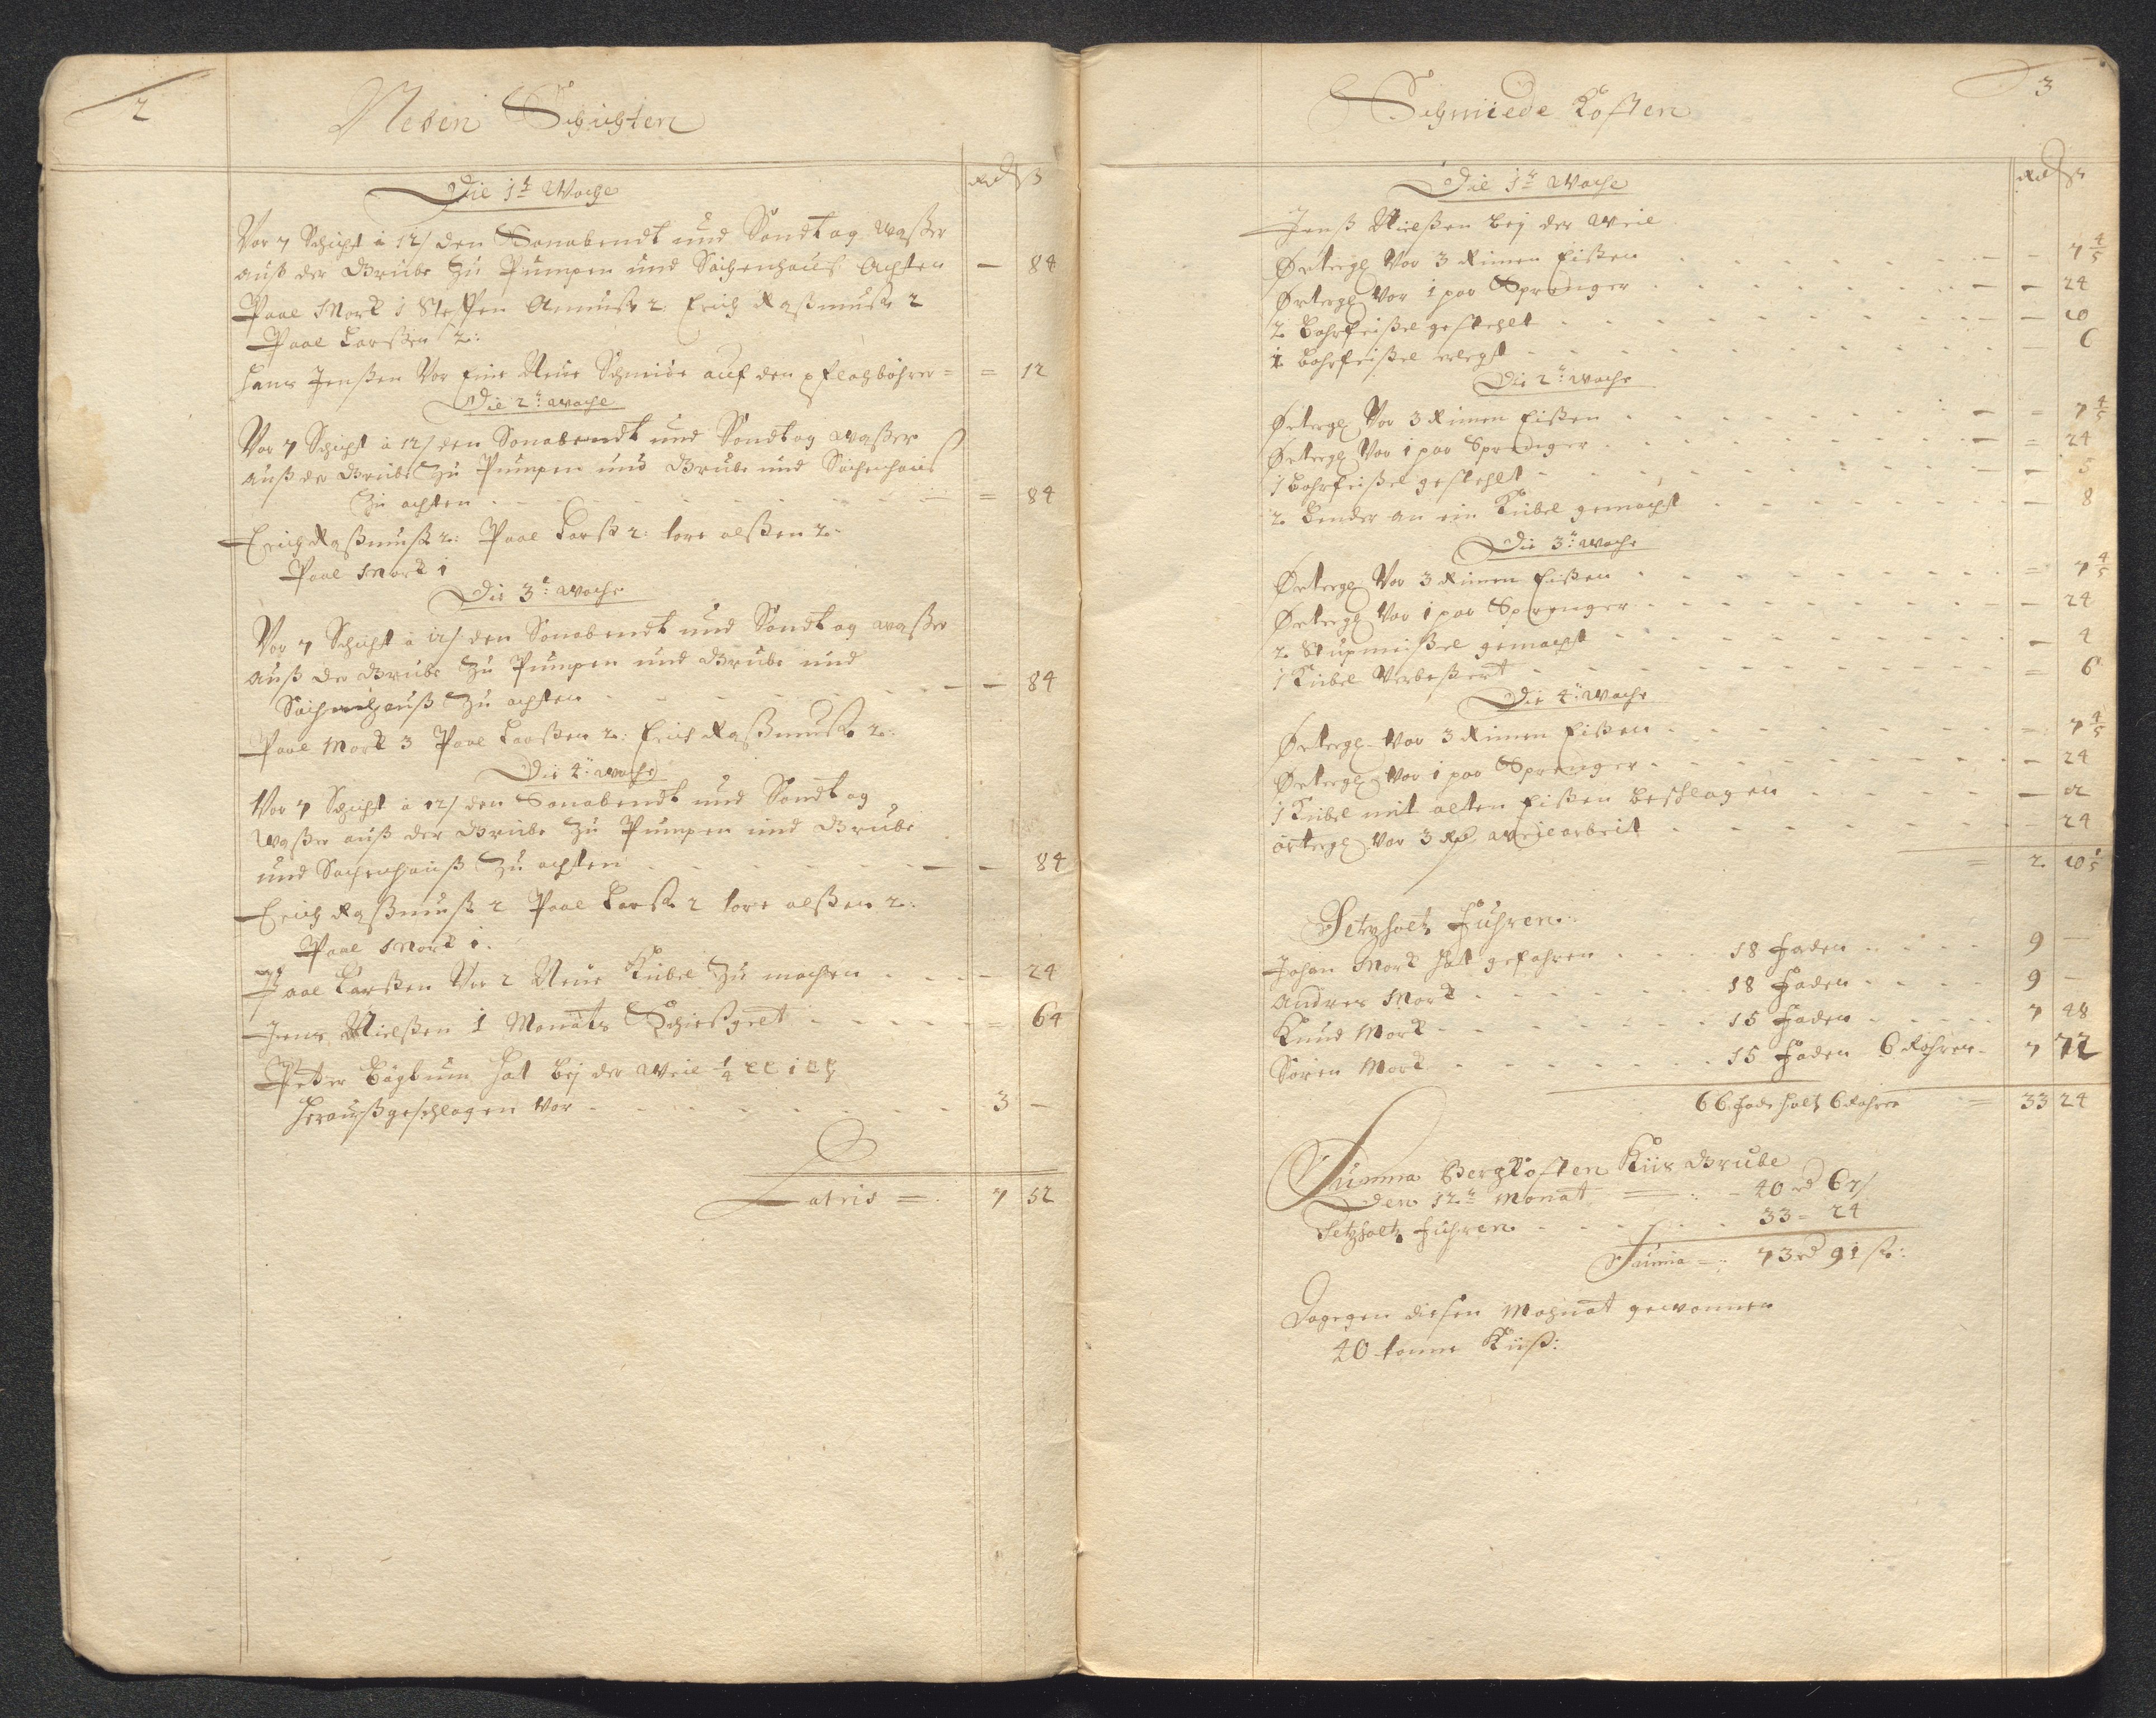 2
Neben Schichten
Rd ß
Die 1t Woche
Vor 7 Schicht à 12/ den Sonabendt und Sondtag Waßer
auß der Grube Zu Pumpen und Sachenhaus Achten — 84
Paal Mork 1 Steffen Amuß 2: Erich Raßmuß 2
Paal Larßen 2:
Hans Jenßen Vor Eine Neue Schmide auf den = = 12
Die 2t: Woche
Vor 7 Schicht à 12/ den Sonabendt und Sondtag Waßer
auß der Grube Zu Pumpen und Grube und Sachenhaus
Zu achten - - - = 84
Erich Raßmuß 2: Paal Larß 2: tore olßen 2:
Paal Mork 1
Die 3t: Woche
Vor 7 Schicht à 12/ den Sonabendt und Sondtag Waßer
auß der Grube Zu Pumpen und Grube und
Sachenhauß Zu achten - - - — 84
Paal Mork 3 Paal Larßen 2: Erich Raßmuß 2:
Die 4t: Woche
Vor 7 Schicht à 12/ den Sonabendt und Sondtag
Waßer auß der Grube Zu Pumpen und Grube
und Sachenhauß Zu achten - - - — 84
Erich Raßmuß 2 Paal Larß 2 tore olßen 2:
Paal Mork 1.
Paal Larßen Vor 2 Neue Kübel Zu machen - - - 24
Jens Nielßen 1 Monats Schießgelt - - - = 64
Peter Bagbum hat bej der Weil 1/4
heraußgeschlagen Vor - - - 3 —
Latris = 7 52
3
Schmiede Kosten
Rd ß
Die 1t Woche
Jenß Nielßen bej der Weil
Ørtergl Vor 3 Rimen Eißen - - - 7 4/5
Ørtergl Vor 1 par Sprenger - - - 24
2 Bohrfeißel gestehlt - - - 10
1 Bohrfeißel erlegt - - - 6
Die 2t: Woche
Ørtergl Vor 3 Rimen Eißen - - - 7 4/5
Ørtergl Vor 1 par Sprenger - - - 24
1 Bohrfeißel gestehlt - - - 5
2 Bender an ein Kübel gemacht - - - 8
Die 3t: Woche
Ørtergl Vor 3 Rimen Eißen - - - 7 4/5
Ørtergl Vor 1 par Sprenger - - - 24
2 Stupmeißel gemacht - - - 4
1 Kübel Verbeßert - - - 6
Die 4t: Woche
Ørtergl Vor 3 Rimen Eißen - - - 7 4/5
Ørtergl Vor 1 par Sprenger - - - 24
1 Kübel mit alten Eißen beschlagen - - -
Ørtergl Vor 3 Rd Weilarbeit - - - 24
= 2 10 1/5
Setzholtz Fuhren:
Johan Mork hat gefahren - - - 18 Faden - - - 9 —
Andres Mork - - - 18 Faden - - - 9 —
Knud Mork - - - 15 Faden - - - 7 48
Sören Mork - - - 15 Faden 6 - - 7 72
66 Fade holtz 6 = 33 24
Summa Bergkosten Kiis Grube
Den 12t Monat — : - 40 rd 67/
Setzholtz Fuhren - - - 33 = 24
Summa = : 73 rd 91 ß:
Dagegen diesen Mohnat gewonnen
40 tonne Kiß: